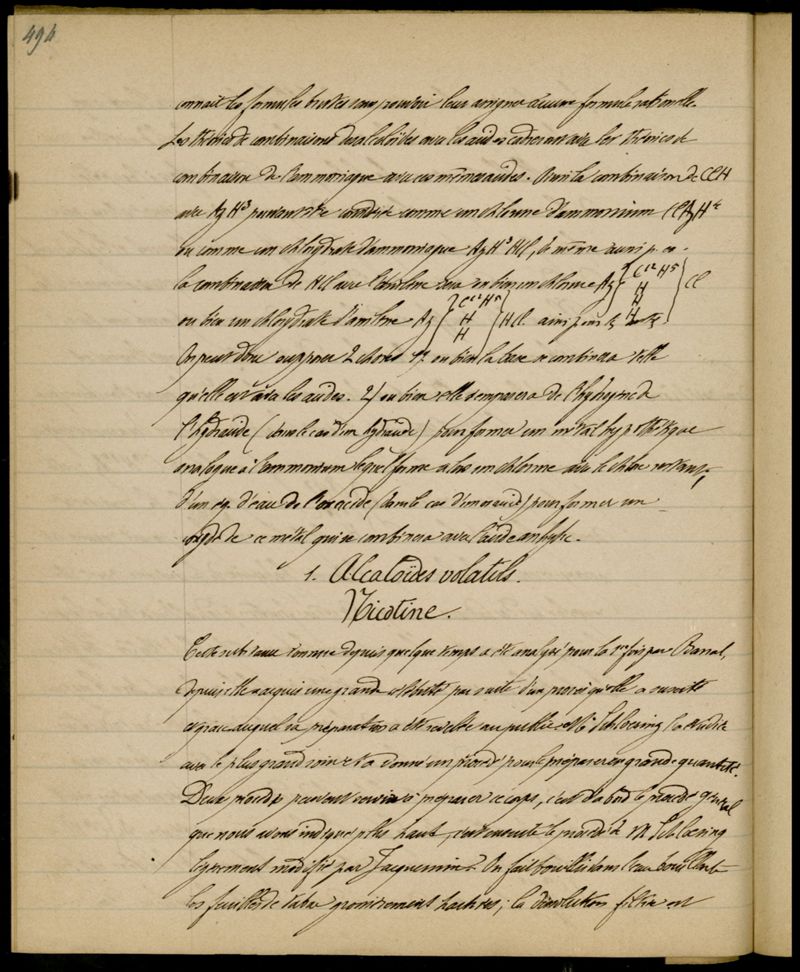 494
connait les formules brutes sans pouvoir leur assigner aucune formule rationnelle.
Les théories de combinaisons des alcaloïdes avec les acides cadrent avec les théories de
combinaison de l'ammoniaque avec ces mêmes acides. Ainsi la combinaison de ClH
avec AzH³ peut être considérée comme un chlorure d'ammonium ClAzH⁴
ou comme un chlorhydrate d'ammoniaque AzH³HCl, de même aussi
la combinaison de HCl avec l'aniline sera ou bien un chlorure Az { C¹² H⁵ H H H } Cl
ou bien un chlorhydrate d'aniline Az { C¹² H⁵ H H } HCl.
On peut donc supposer 2 choses 1) ou bien la base se combinera telle
qu'elle est avec les acides. 2) ou bien elle s'emparera de l'hydrogène de
l'hydracide (dans le cas d'un hydracide) pour former un métal hypothétique
analogue à l'ammonium lequel forme alors un chlorure avec le chlore restant,
d'un éq. d'eau de l'oxacide (dans le cas d'un oxacide) pour former un
oxyde de ce métal qui se combinera avec l'acide anhydre.
1. Alcaloïdes volatils.
Nicotine.
Cette substance connue depuis quelque temps a été analysée pour la 1re fois par Barral,
depuis elle a acquis une grande célébrité par suite d'un procès qu'elle a suscité
et grâce auquel sa préparation a été révélée au public. Mr Schloesing l'a étudiée
avec le plus grand soin et a donné un procédé pour le préparer en grande quantité.
Deux procédés peuvent servir à préparer ce corps, c'est d'abord le procédé général
que nous avons indiqué plus haut, c'est ensuite le procédé de M Schloesing
légèrement modifié par Jacquemin. On fait bouillir dans l'eau bouillante
les feuilles de tabac grossièrement hachées; la dissolution filtrée est